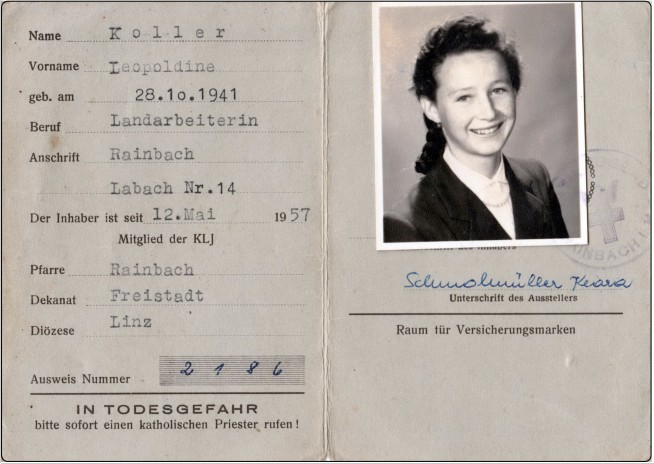 Name Koller
Vorname Leopoldine
geb. am 28.10.1941
Beruf Landarbeiterin
Anschrift Rainbach
Labach Nr.14
Der Inhaber ist seit 12.Mai 1957
Mitglied der KLJ
Pfarre Rainbach
Dekanat Freistadt
Diözese Linz
Ausweis Nummer 2186
IN TODESGEFAHR
bitte sofort einen katholischen Priester rufen!
des Inhabers
Unterschrift des Ausstellers
Raum für Versicherungsmarken